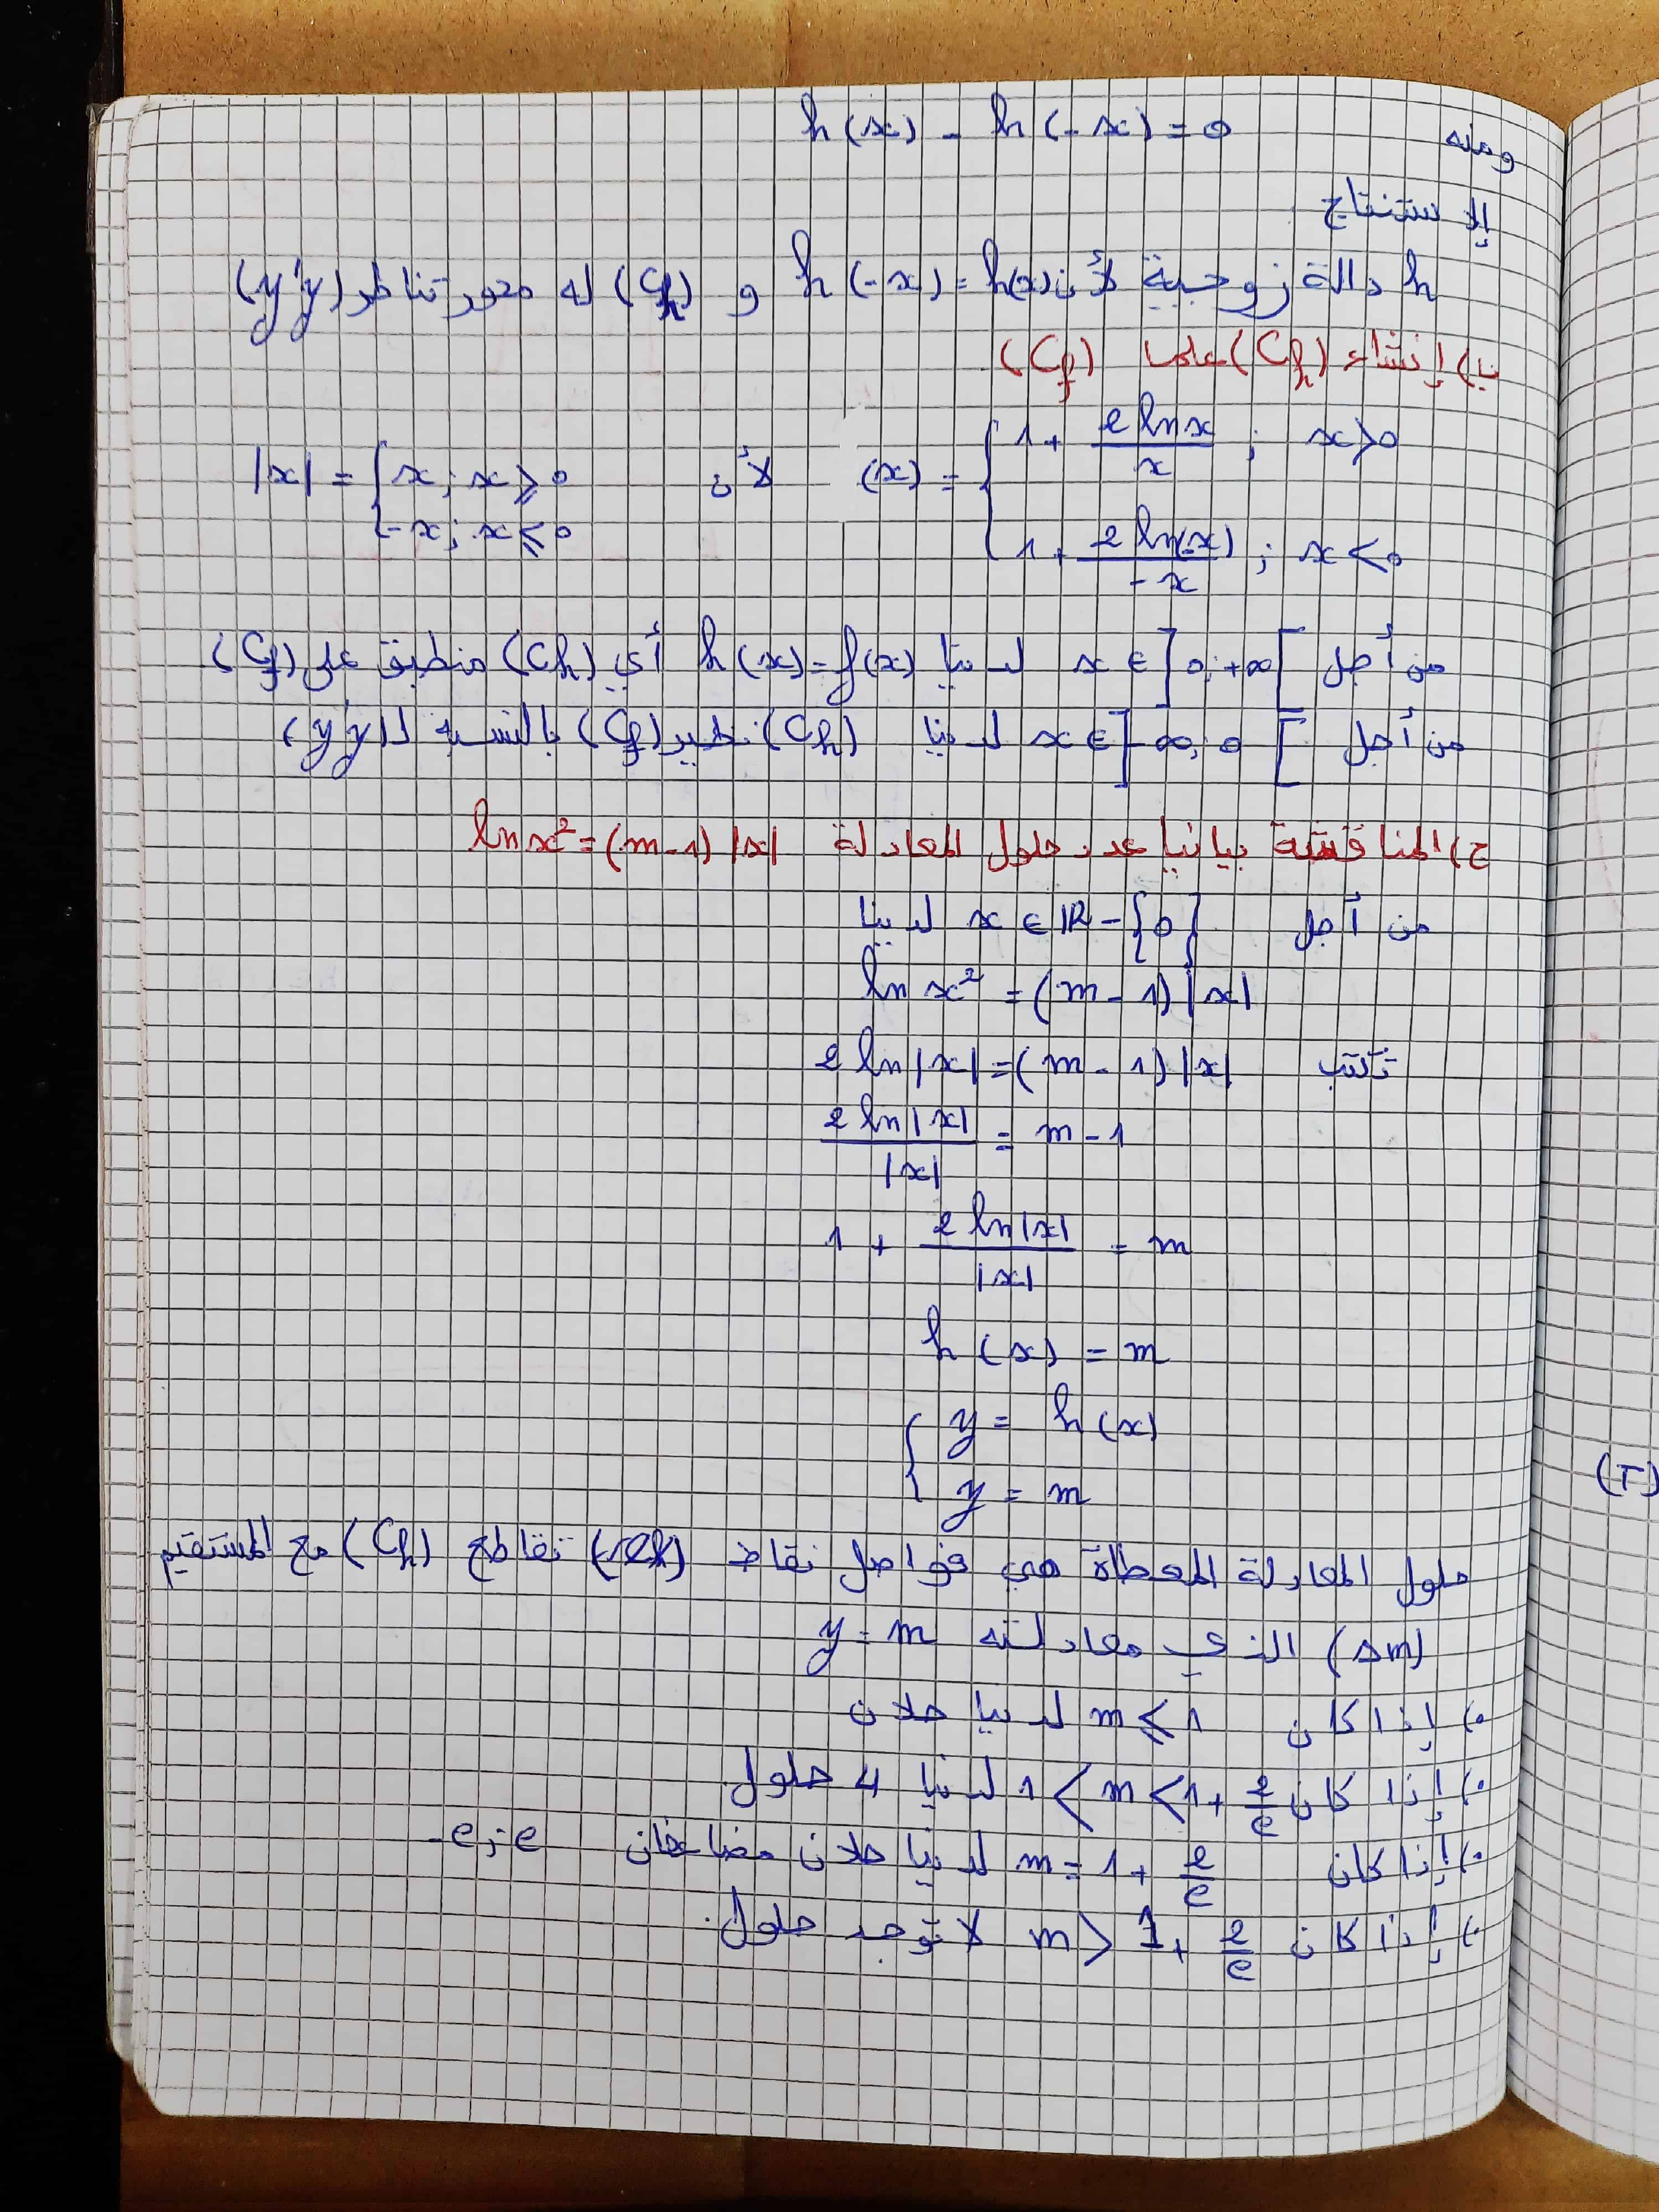 ومنه h(x) - h(-x) = 0
إلاستنتاج
h دالة زوجية لأن h(-x) = h(x) و (Ch) له محور تناظر (y'y)
ب) إنشاء (Ch) على (Cf)
(x) = { 1 + 2 ln x / x ; x > 0 لأن |x| = { x ; x ⩾ 0
1 + 2 ln(-x) / -x ; x < 0 -x ; x ⩽ 0
من أجل x ∈ ]0 ; +∞[ لدينا h(x) = f(x) أي (Ch) منطبق على (Cf)
من أجل x ∈ ]-∞ ; 0[ لدينا (Ch) نظير (Cf) بالنسبة لـ (y'y)
ج) المناقشة بيانيا عدد حلول المعادلة ln x² = (m-1) |x|
من أجل x ∈ IR - {0} لدينا
ln x² = (m - 1) |x|
تكتب 2 ln|x| = (m - 1) |x|
2 ln|x| / |x| = m - 1
1 + 2 ln|x| / |x| = m
h(x) = m
{ y = h(x)
y = m
حلول المعادلة المعطاة هي فواصل نقاط تقاطع (Ch) مع المستقيم
(Δm) الذي معادلته y = m
•) إذا كان m ⩽ 1 لدينا حلان
•) إذا كان 1 < m < 1 + 2/e لدينا 4 حلول
•) إذا كان m = 1 + 2/e لدينا حلان مضاعفان -e ; e
•) إذا كان m > 1 + 2/e لا توجد حلول.
(T)